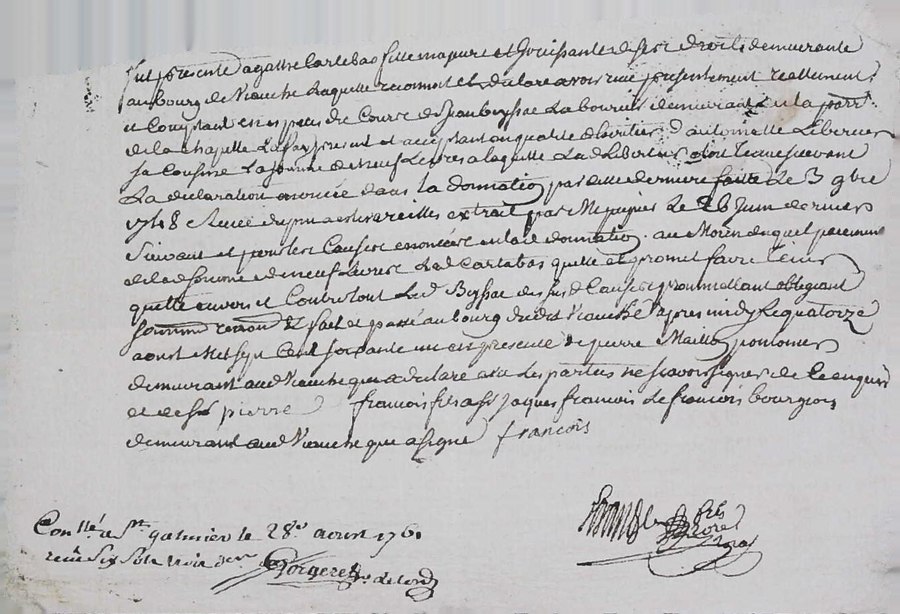 fut presente agathe Cartebas fille majure et Jouissante de ses droits demeurante
au bourg de Viauche laquelle reconnoit et declare avoir recu presentement reellement
et Comptant en espece de Cours de Jean beyssac Laboureur demeurant en la parr.
de la Chapelle Lafay present et acceptant en qualite d'heritier d'antoinette Libercier
sa Cousine La somme de neuf Livres a laquelle La d Libercier etoit tenue suivant
La declaration enoncée dans la donnation par cette derniere faite Le 3 9bre
1748 extrait par Me Le 26 Juin dernier
suivant et pour les Causes enoncées en la d donnation. au Moien duquel paiement
de la d somme de neuf Livres La d Cartebas quitte et promet faire tenir
quitte envers et Contre tout Le d Beyssac des sus d Causes promettant obligeant
soumettant renon et fait et passé au bourg du dit Viauche apres midy Le quatorze
aoust Mil sept Cent soixante un en presence de pierre Maillon
demeurant aud Viauche qui a declaré avec Les parties ne scavoir signer de Ce enquis
et de sr pierre francois fils a sr Jaques francois Le francois bourgeois
demeurant aud Viauche qui a signé francois
Conllé a St galmier le 28e aoust 1761
recu six sols